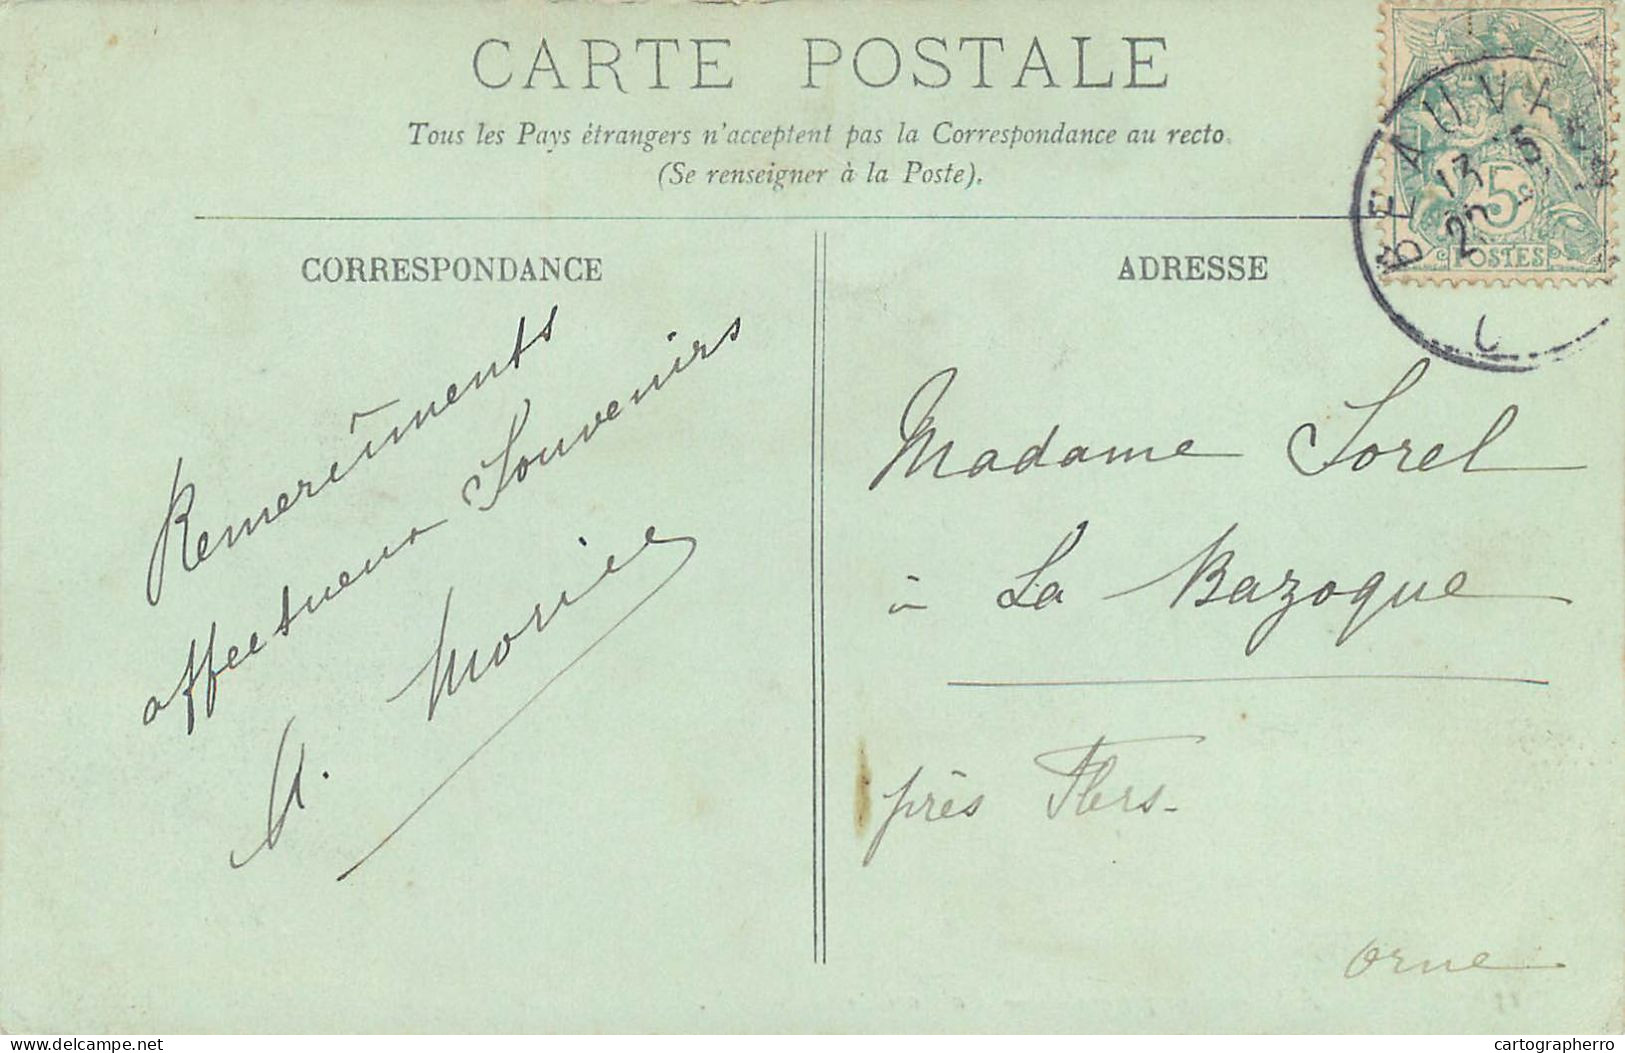 CARTE POSTALE
Tous les Pays étrangers n'acceptent pas la Correspondance au recto.
(Se renseigner à la Poste).
CORRESPONDANCE
Remerciments
affectueux Souvenirs
A. Morice
ADRESSE
BEAUVA
13
5
20
5c
POSTES
Madame Sorel
à La Bazoque
près Flers-
Orne
delcampe.net
cartographerro